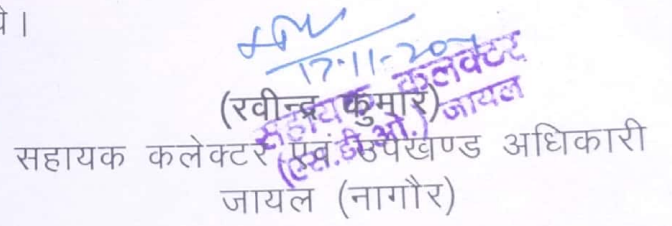 । 
17-11-20
(रवीन्द्र कुमार)
सहायक कलेक्टर एवं उपखण्ड अधिकारी
जायल (नागौर)
सहायक कलेक्टर
(एस.डी.ओ.) जायल